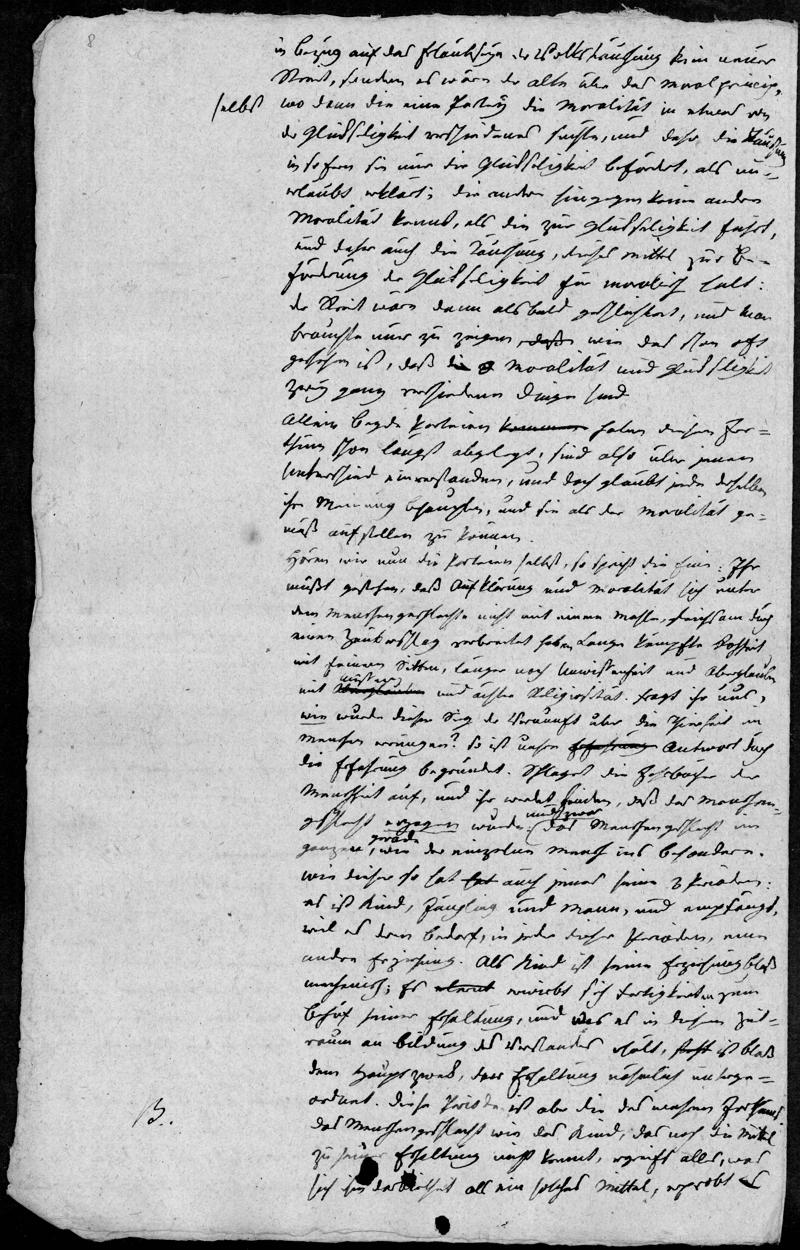 8
in bezug auf das Erlaubtseyn der Volkstäuschung kein neuer
Streit, sondern es wäre der alte über das Moralprincip,
selbst
wo dann die eine Parthey die Moralität in etwas von
der Glückseligkeit verschiedenes suchte, und daher die Täuschung
insofern sie nur die Glückseligkeit befördert, als un-
erlaubt erklärt; die andere hingegen keine andere
Moralität kennt, als die zur Glückseligkeit führt,
und daher auch die Täuschung, dieses Mittel zur Be-
förderung der Glückseligkeit für moralisch hält:
der Streit wäre dann alsbald geschlichtet, und man
brauchte nur zu zeigen, wie das schon oft
geschehen ist, daß die Moralität und Glückseligkeit
zwey ganz verschiedene Dinge sind
Allein beyde Partheien haben diesen Irr-
thum schon längst abgelegt, sind also über jenen
Unterschied einverstanden, und doch glaubt jede derselben
ihre Meinung behaupten, und sie als der Moralität ge-
mäß aufstellen zu können.
Hören wir nun die Partheien selbst, so spricht die Eine: Ihr
müßt gestehen, daß Aufklärung und Moralität sich unter
dem Menschengeschlechte nicht mit einem Mahle, gleichsam durch
einen Zauberschlag verbreitet haben. Lange kämpfte Rohheit
mit feinern Sitten, länger noch Unwissenheit und Aberglauben
mit und ächter Religiosität. Fragt ihr uns,
wie wurde dieser Sieg der Vernunft über die Thierheit im
Menschen errungen? so ist unsere Antwort durch
die Erfahrung begründet. Schlaget die Jahrbücher der
Menschheit auf, und ihr werdet finden, daß das Menschen-
geschlecht erzogen wurde: und zwar das Menschengeschlecht im
ganzen, gerade wie der einzelne Mensch ins besondere.
wie dieser so hat auch jenes seine 3 Perioden:
es ist Kind, Jüngling und Mann, und empfängt,
weil es dem bedarf, in jeder dieser Perioden, eine
andere Erziehung. Als Kind ist seine Erziehung bloß
mechanisch; Es erwirbt sich Fertigkeiten zum
Behuf seiner Erhaltung, und was es in diesem Zeit-
raum an Bildung des Verstandes erhält, ist bloß
dem Hauptzweck, der Erhaltung nähmlich unterge-
ordnet. Diese Periode ist aber die des wahren Irrthums
das Menschengeschlecht wie das Kind, das noch die Mittel
zu seiner Erhaltung nicht kennt, ergreift alles, was
sich ihm darbiethet als ein solches Mittel, erprobt es
B..